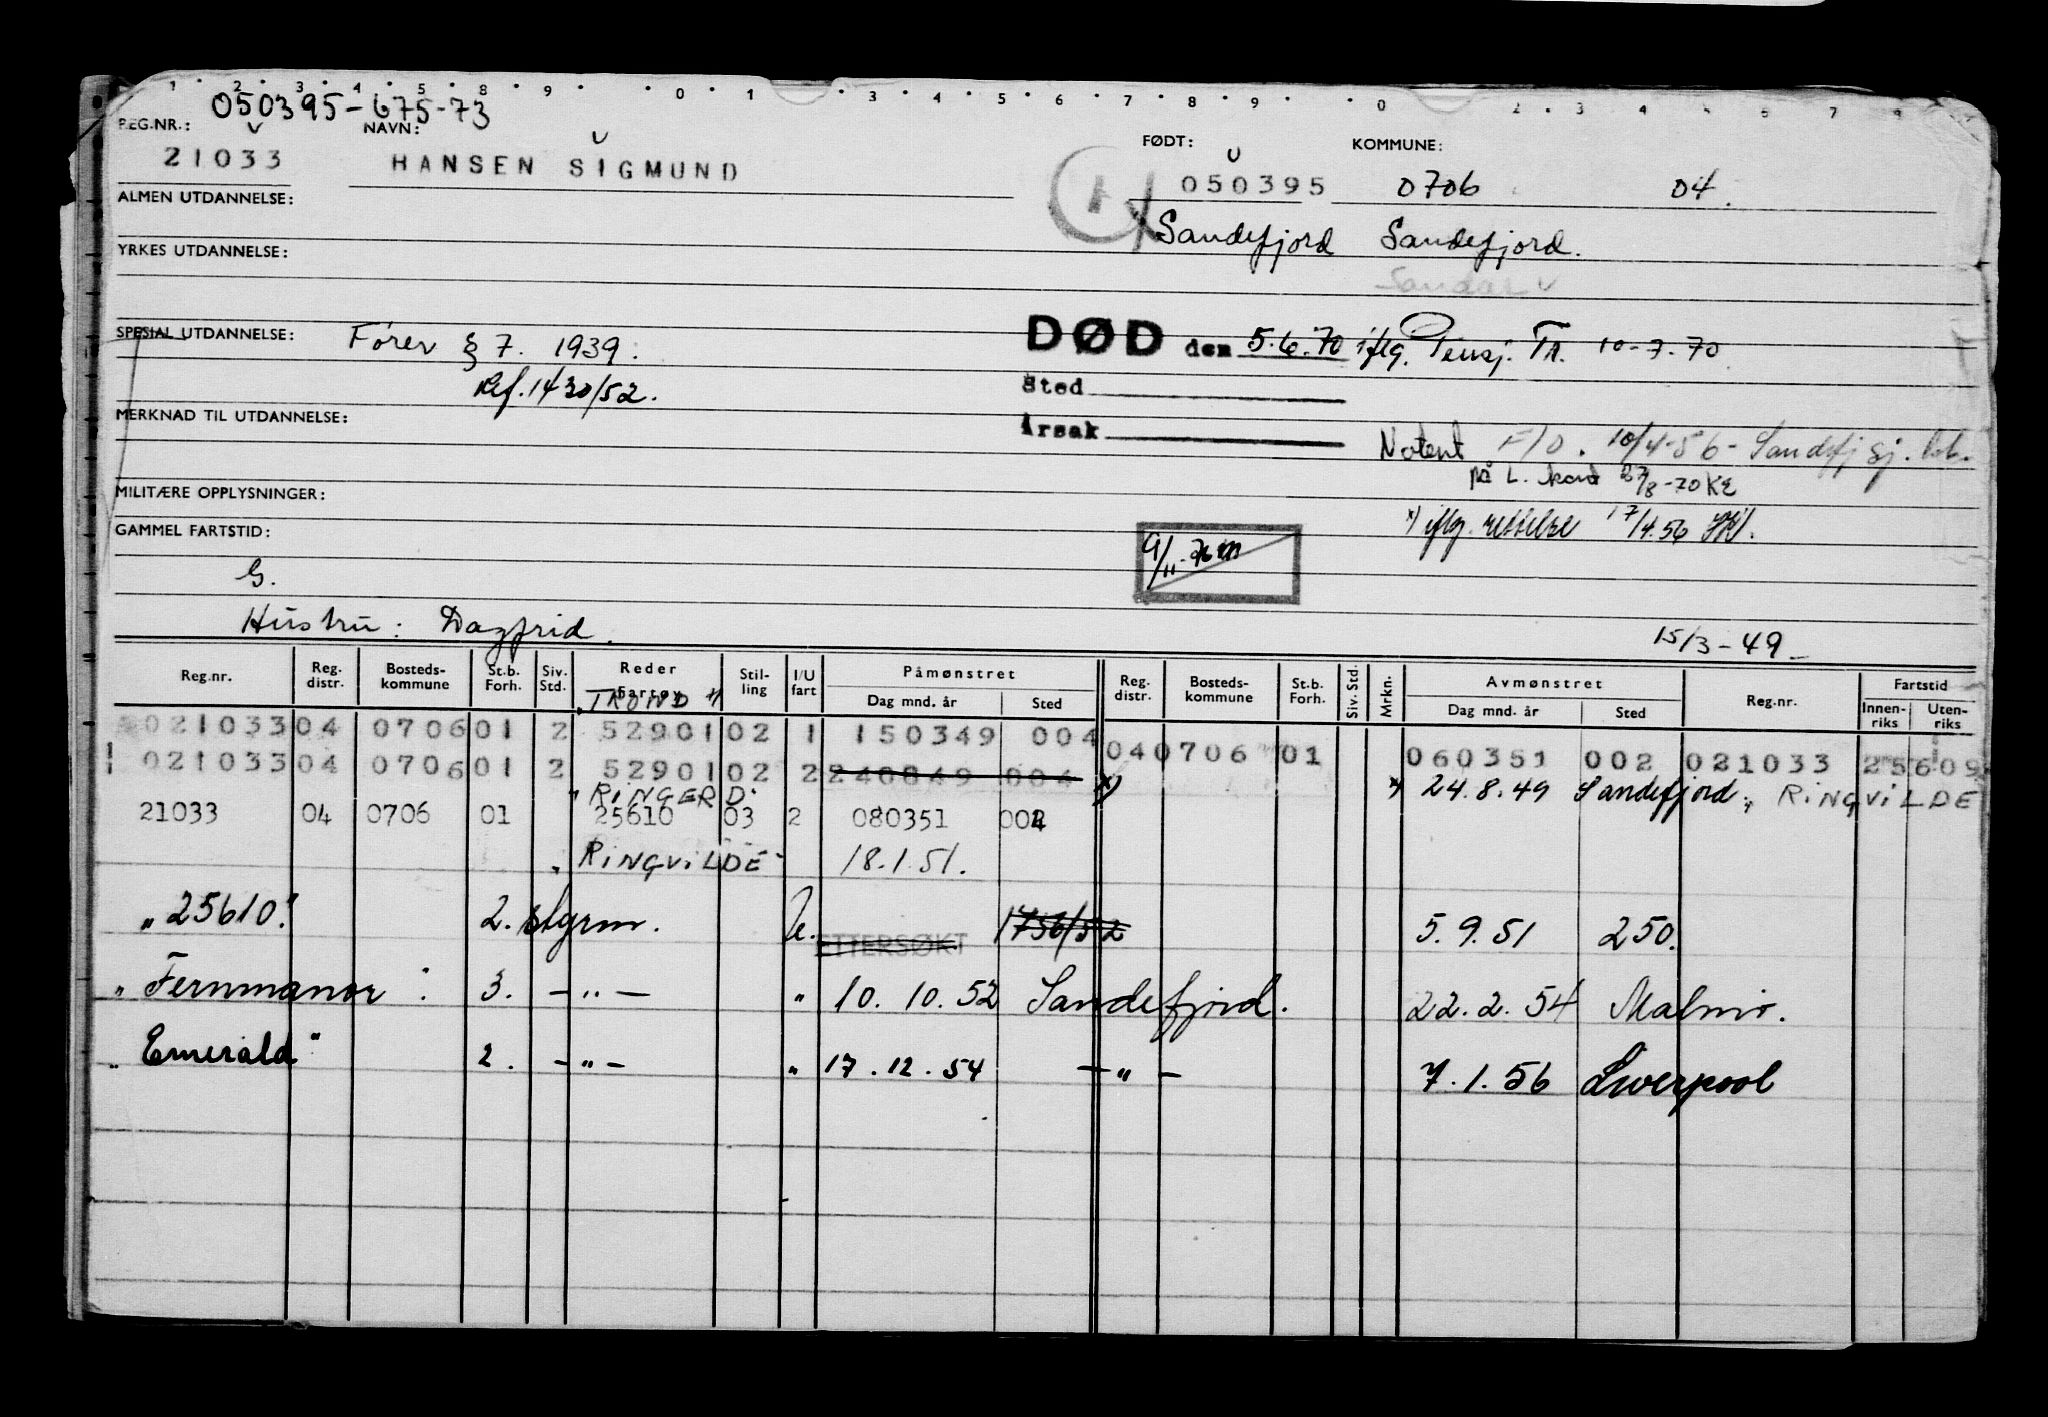 050395-675-73
REG.NR.: NAVN: FØDT: KOMMUNE:
21033 HANSEN SIGMUND 050395 0706 04.
ALMEN UTDANNELSE:
x) Sandefjord Sandefjord.
Sandar
YRKES UTDANNELSE:
SPESIAL UTDANNELSE: Fører § 7. 1939. DØD den 5.6.70 iflg. Pensj. Tr. 10-7-70
Ref. 1430/52. Sted
MERKNAD TIL UTDANNELSE: Årsak
Notert F/D. 10/4-56 - Sandefj sj.
på L. kort 27/8-70 KE
MILITÆRE OPPLYSNINGER:
x) iflg. rettelse 17/4.56
GAMMEL FARTSTID:
G.
Hustru: Dagfrid. 15/3-49
Reg.nr. Reg. distr. Bosteds-kommune St.b. Forh. Siv. Std. Reder Fartøy Stil-ling I/U fart Påmønstret Dag mnd. år Sted Reg. distr. Bosteds-kommune St.b. Forh. Siv. Std. Mrkn. Avmønstret Dag mnd. år Sted Reg.nr. Fartstid Innen-riks Uten-riks
"TROND" x)
021033 04 0706 01 2 52901 02 1 150349 004
040706 01 060351 002 021033 25609
021033 04 0706 01 2 52901 02 2 240849 004 x)
"RINGERD" x) 24.8.49 Sandefjord, "RINGVILDE
21033 04 0706 01 25610 03 2 080351 002
"RINGVILDE" 18.1.51.
"25610" 2. styrm. U. 1756/52 5.9.51 250.
ETTERSØKT
"Fernmanor" 3. -"- " 10.10.52 Sandefjord. 22.2.54 Malmø.
"Emerald" 2. -"- " 17.12.54 -"- 7.1.56 Liverpool